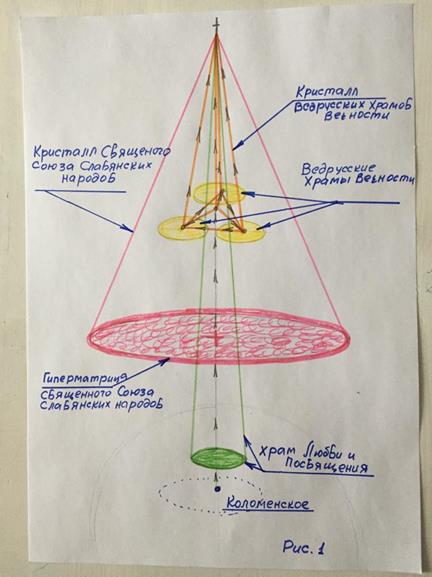 Кристалл
Ведрусских Храмов
Вечности
Кристалл Священого
Союза Славянских
народов
Ведрусские
Храмы Вечности
Гиперматрица
Священного Союза
Славянских народов
Храм Любви и
Посвящения
Коломенское
Рис. 1